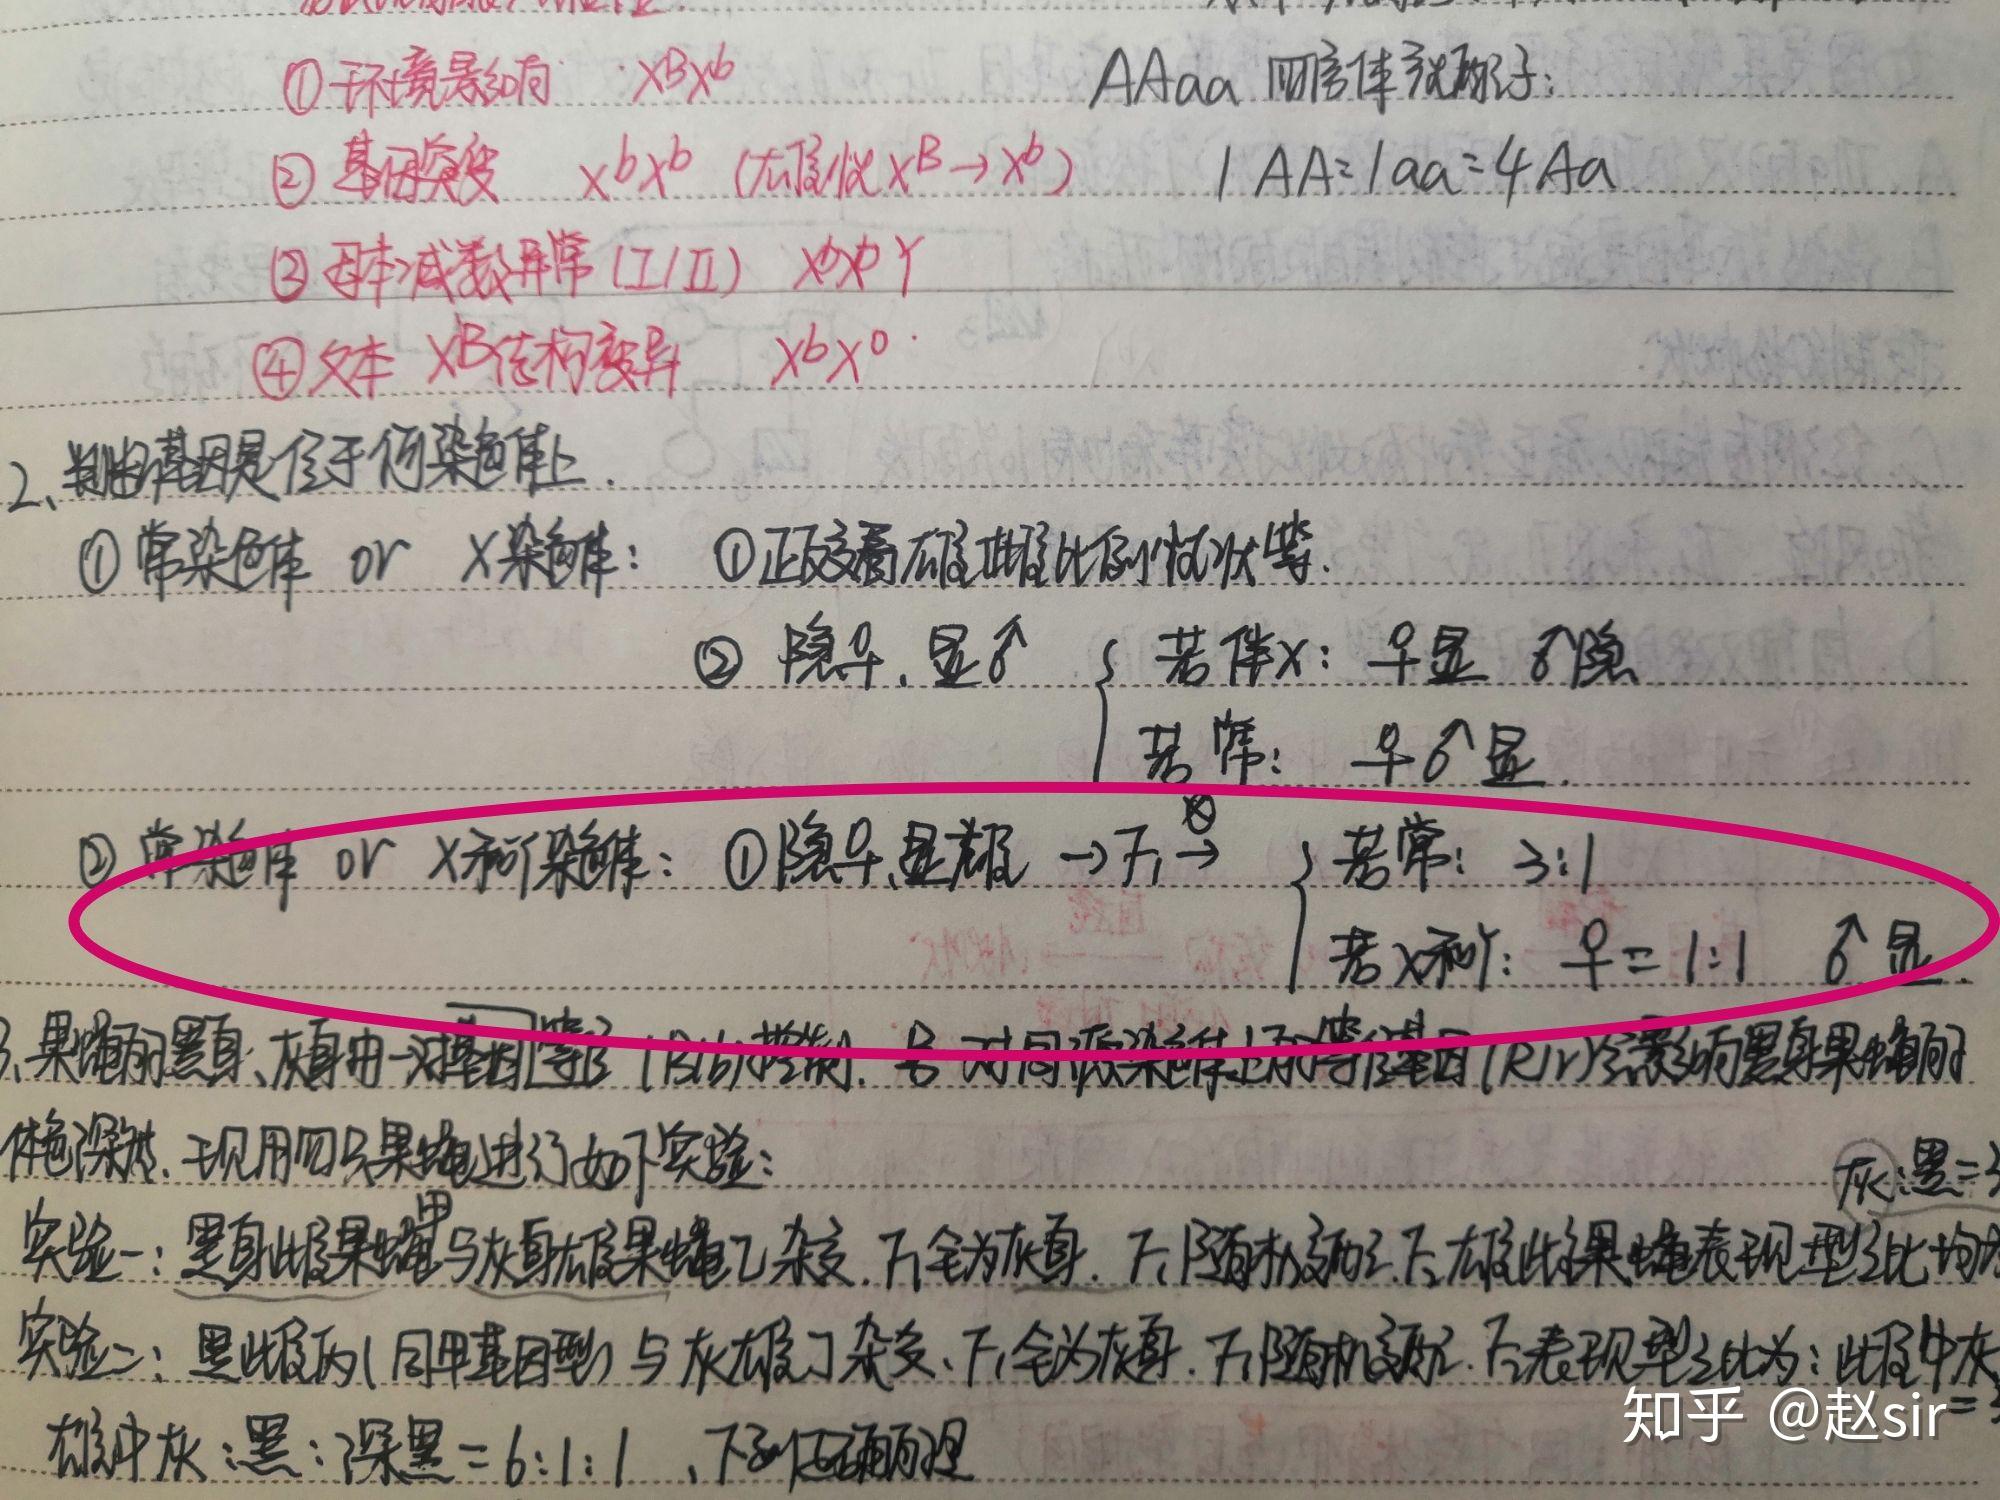 ①环境影响 XᴮXᵇ AAaa 四倍体产配子:
②基因突变 XᵇXᵇ (雄性Xᴮ→Xᵇ) 1AA=1aa=4Aa
③母本减数异常(I/II) XᵇXᵇY
④父本 Xᴮ结构变异 XᵇX⁰
2、判断基因是位于何染色体上.
①常染色体 or X染色体: ①正反交看雄雌比例性状等.
②隐♀、显♂ { 若伴X: ♀显 ♂隐
若常: ♀♂显.
②常染色体 or X和Y染色体: ①隐♀、显雄 →F₁ ⊗→ { 若常: 3:1
若X和Y: ♀=1:1 ♂显.
3、果蝇的黑身、灰身由一对等位基因(B/b)控制. 另一对同源染色体上的等位基因(R/r)会影响黑身果蝇的
体色深浅. 现用四只果蝇进行如下实验: 灰:黑=3
实验一: 黑身雌果蝇甲与灰身雄果蝇乙杂交. F₁全为灰身. F₁随机交配. F₂雄雌果蝇表现型之比均为
实验二: 黑雌丙(同甲基因型)与灰雄丁杂交、F₁全为灰身. F₁随机交配. F₂表现型之比为: 雌中灰
雄中灰:黑:深黑=6:1:1
知乎 @赵sir